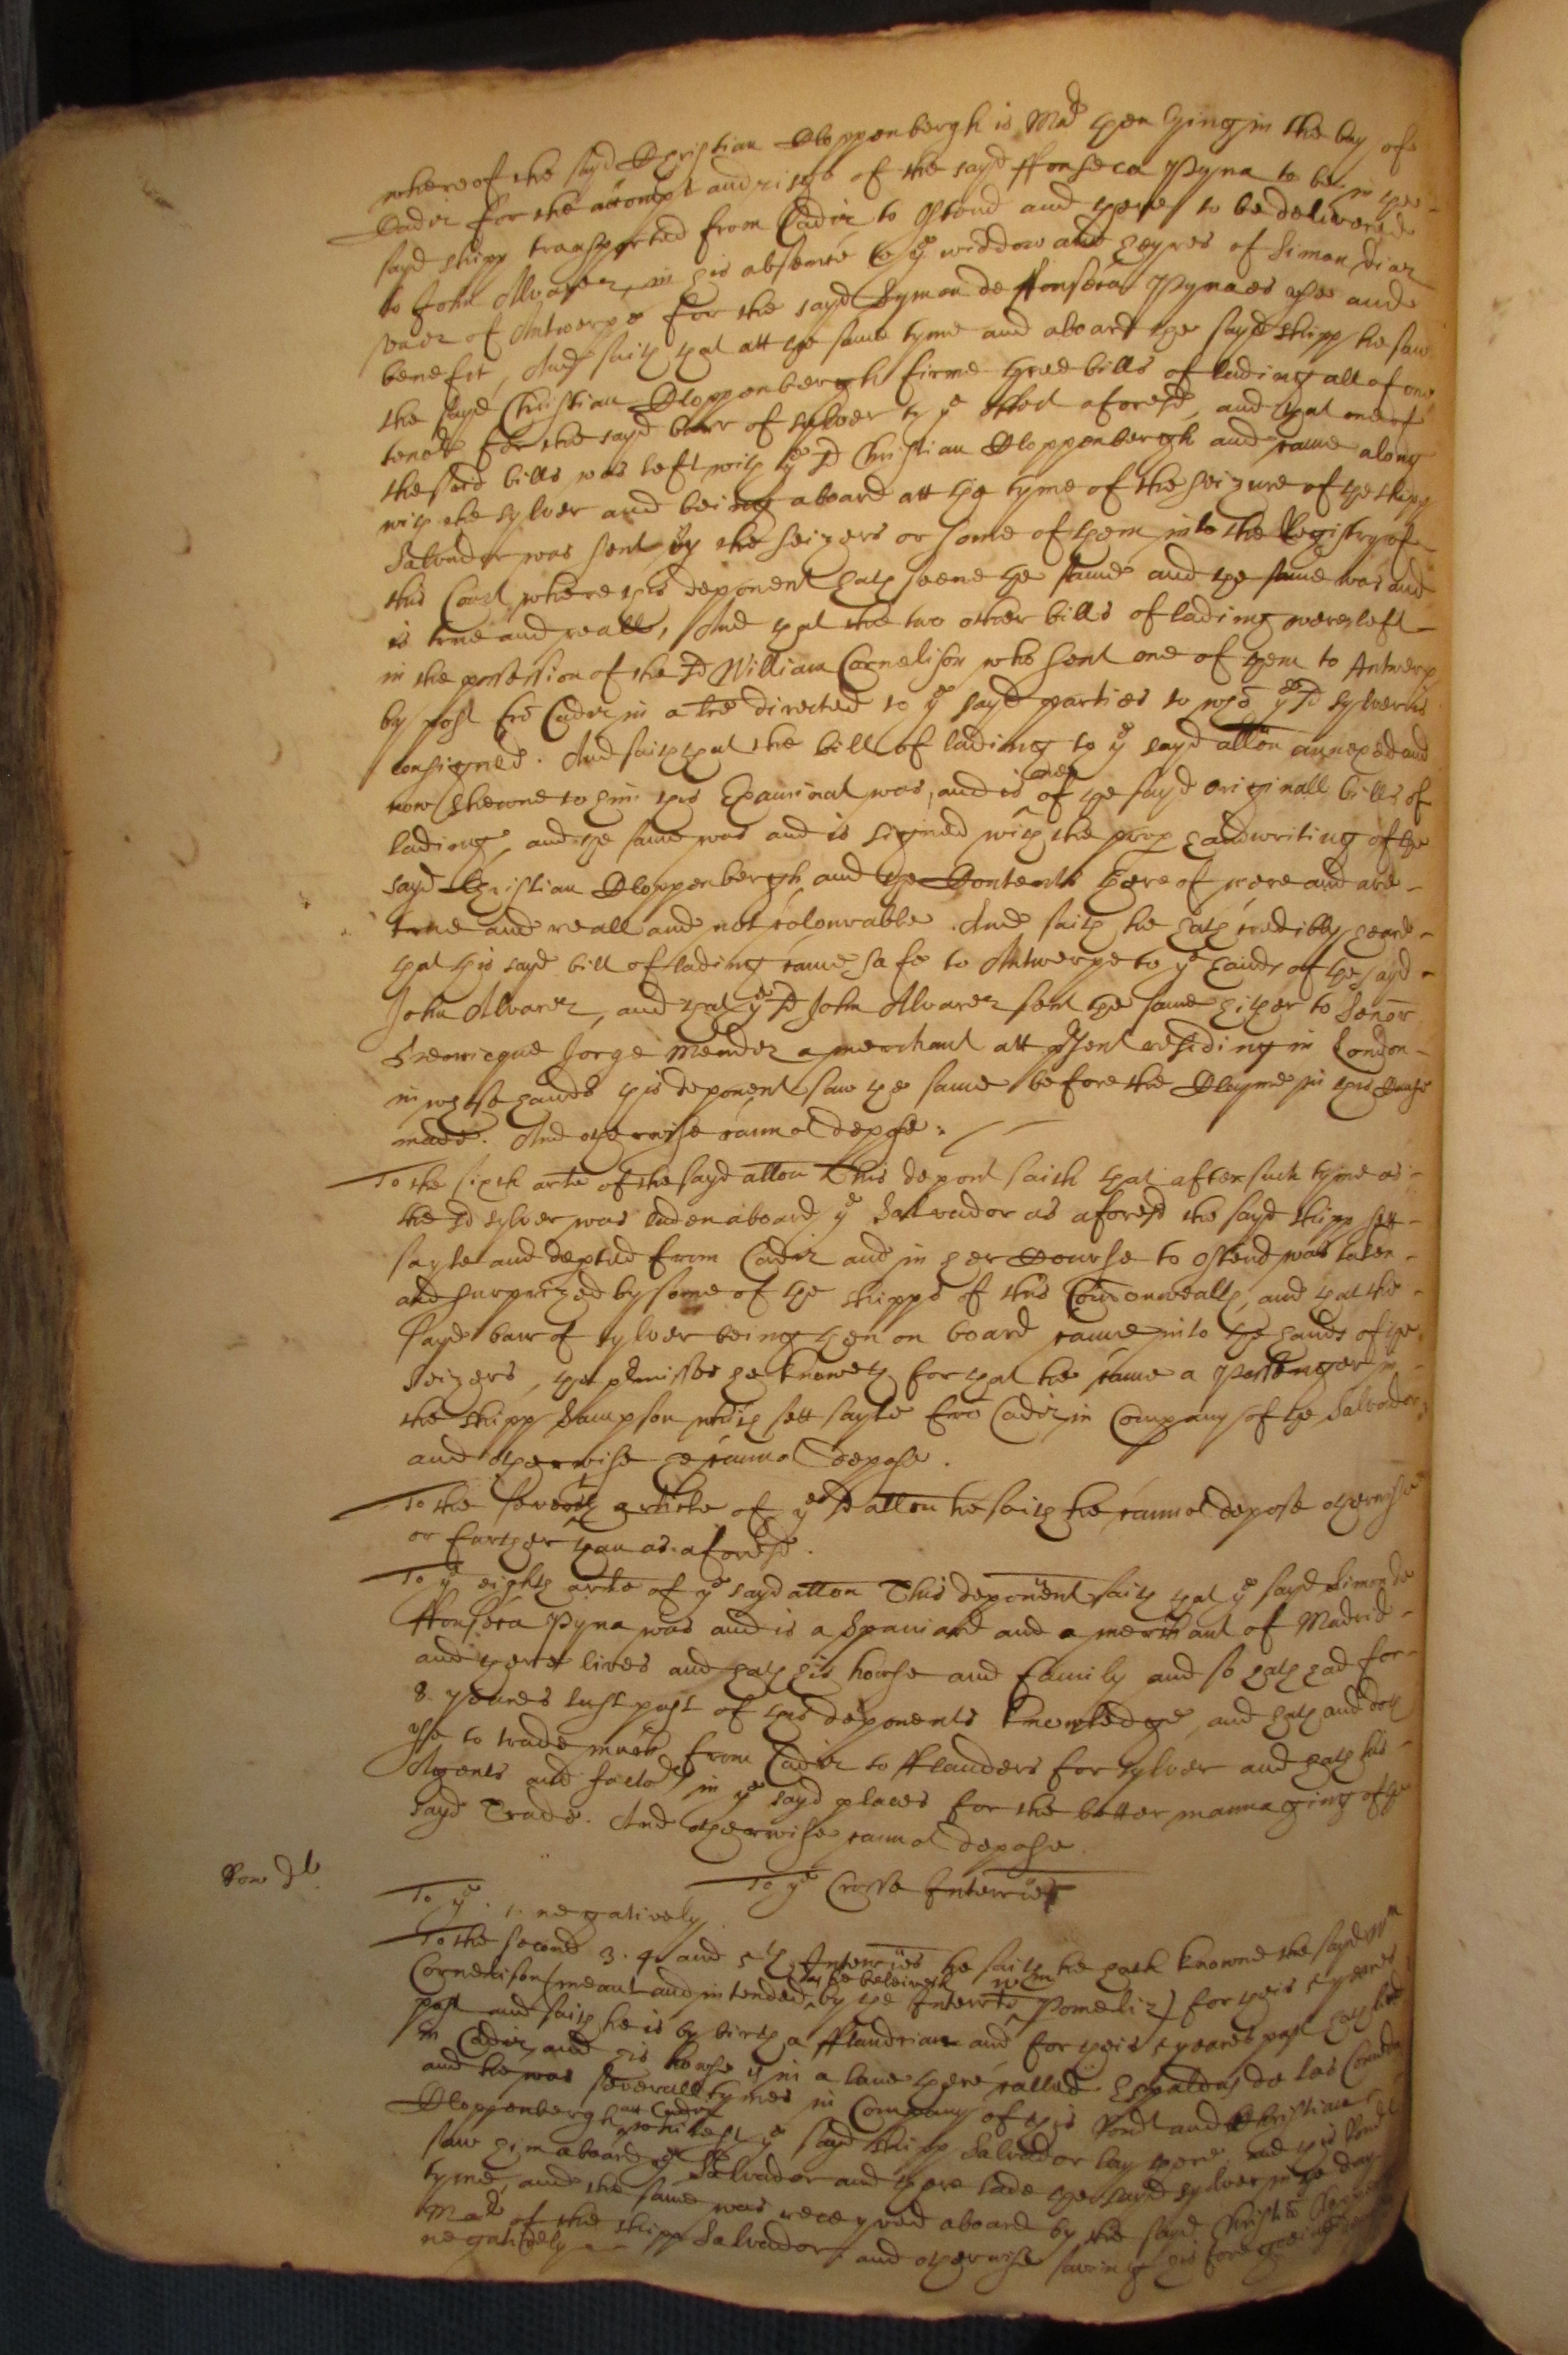 whereof the sayd Christian Cloppenbergh is Mr then lying in the bay of
Cadiz for the accompt and risge of the sayd ffonseca Pyna to be in the
sayd shipp transported from Cadiz to Ostend and there to be delivered
to John Alvarez, in his absence to ye widdow and heyres of Simon diaz
vaez of Antwerpe for the sayd Symon de ffonseca Pynaes use and
benefit, And saith that att the same tyme and aboard the sayd shipp he saw
the sayd Christian Cloppenbergh firme three bills of lading all of one
tenor for the sayd barr of sylver to ye effect aforesd, and that one of
the sayd bills was left with ye sd Christian Cloppenbergh and came along
with the sylver and being aboard att the tyme of the seizure of the shipp
Salvador was sent by the seizers or some of them into the Registry of
this Court where this deponent hath seene the same and the same was and
is true and reall, And that the two other bills of lading were left
in the possession of the sd William Cornelison who sent one of them to Antwerp
by post fro Cadiz in a lre directed to ye sayd parties to whō ye sd sylver is
consigned. And saith that the bill of lading to ye sayd allōn annexed and
now shewne to him this Examinat was, and is one of the sayd originall bills of
lading, and the same was and is signed with the prop handwriting of the
sayd Christian Cloppenbergh and the Contents thereof were and are
true and reall and not colourable. And saith he hath credibly heard
that this sayd bill of lading came safe to Antwerpe to ye hands of the sayd
John Alvarez, and that ye sd John Alvarez sent the same hither to Senōr
Henricque Jorge Mendez a merchant att psent residing in London
in whose hands this deponent saw the same before the Clayme in this Cause
made. And otherwise cannot depose.
To the sixth arte of the sayd allōn This depont saith that after such tyme as
the sd sylver was laden aboard ye Salvador as aforesd the sayd shipp sett
sayle and depted from Cadiz and in her Course to Ostend was taken
and surprized by some of the shipps of this Comonwealth, and that the
sayd barr of sylver being then on board came into the hands of the
Seizers, the pmisses he knoweth for that he came a Passenger in
the shipp Sampson which sett sayle fro Cadiz in Company of the Salvador,
and otherwise he cannot depose.
To the seventh article of ye sd allōn he saith he cannot depose otherwise
or further than as aforesd.
To ye eighth arte of ye sayd allōn This deponent saith that ye sayd Simon de
ffonseca Pyna was and is a Spaniard and a merchant of Madrid
and there lives and hath his house and family and so hath had for
8. yeares last past of this deponents knowledge, and hath and doth
use to trade much from Cadiz to fflanders for sylver and hath his
Agents and factors in ye sayd places for the better mannaging of the
sayd Trade. And otherwise cannot depose.
To ye Crosse Interries
To ye. 1. negatively.
To the second 3. 4. and 5th Interries he saith he hath knowne the sayd Wm
Cornelison (meant and intended as he beleiveth by the Interrte Pomeliz) for theis yeares
past and saith he is by birth a fflandrian and for theis yeares past hath lived
in Cadiz and his house is in a lane there called Espaldas de las
and he was severall tymes in Company of this Rondt and Christian
Cloppenbergh att Cadiz whilest ye sayd shipp Salvador lay there, and this Rondt
saw him aboard ye Salvador and there lade the sayd sylver in the day
tyme, and the same was receyved aboard by the sayd Christiā
Mar of the shipp Salvador. and otherwise saving his foregoeing
negatively